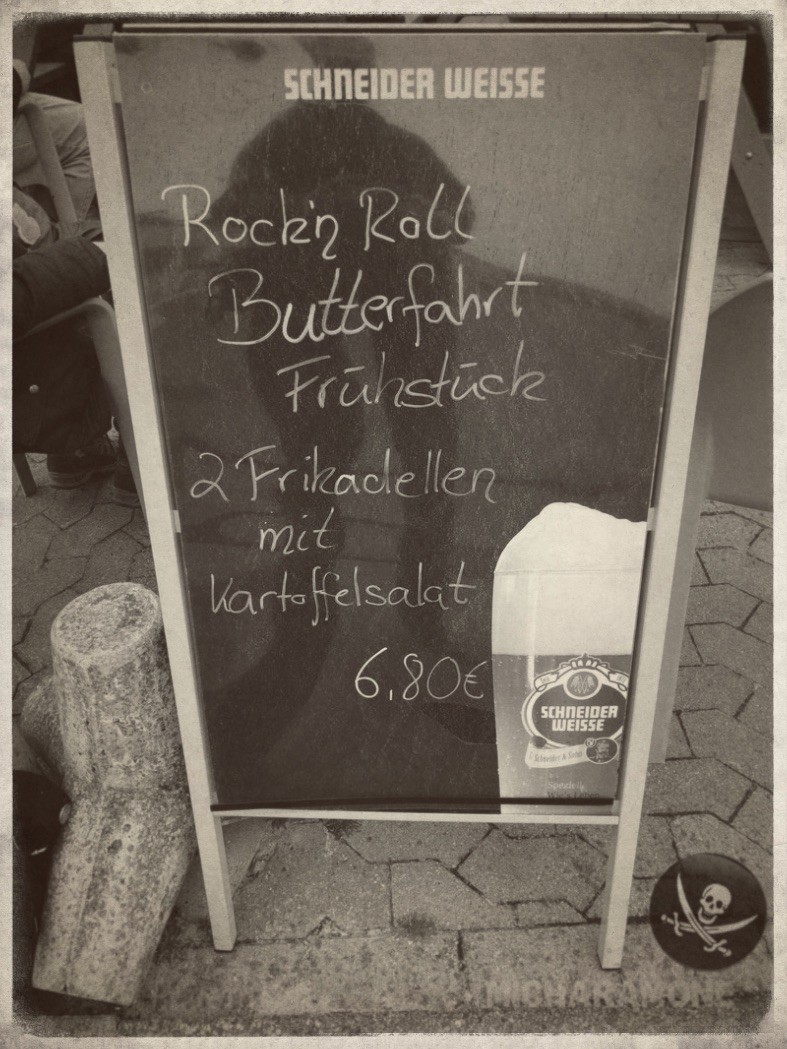 SCHNEIDER WEISSE
Rock'n Roll
Butterfahrt
Frühstück
2 Frikadellen
mit
Kartoffelsalat
6,80€
SCHNEIDER
WEISSE
Schneider & Sohn